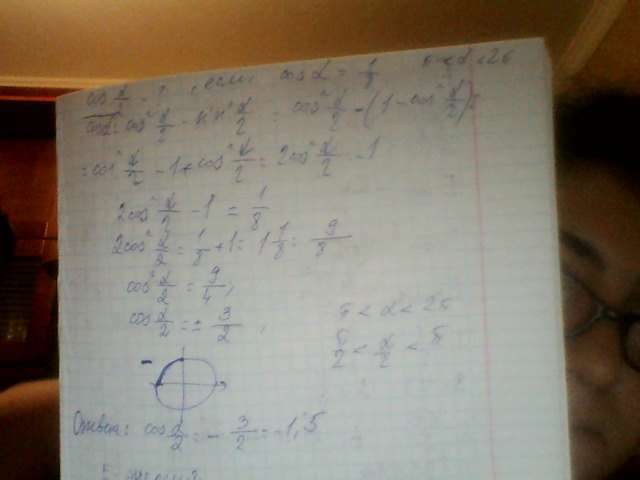 cos α/2 - ? , если cos α = 1/8 π < α < 2π
cos α = cos² α/2 - sin² α/2 = cos² α/2 - (1 - cos² α/2) =
= cos² α/2 - 1 + cos² α/2 = 2cos² α/2 - 1
2cos² α/2 - 1 = 1/8
2cos² α/2 = 1/8 + 1 = 1 1/8 = 9/8
cos² α/2 = 9/4,
cos α/2 = ± 3/2,
π < α < 2π
π/2 < α/2 < π
-
Ответ: cos α/2 = - 3/2 = -1,5